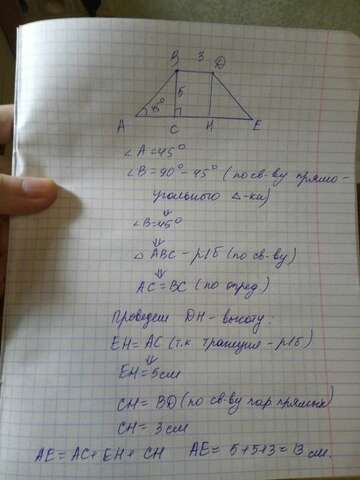 B 3 D
5
45°
A C H E
∠A=45°
∠B=90°-45° (по св-ву прямо-
угольного △-ка)
⇓
∠B=45°
⇓
△ ABC - р/б (по св-ву)
⇓
AC=BC (по опред)
Проведем DH - высоту:
EH=AC (т.к трапеция - р/б)
⇓
EH=5см
CH=BD (по св-ву пар прямых)
CH=3см
AE=AC+EH+CH AE=5+5+3=13 см.